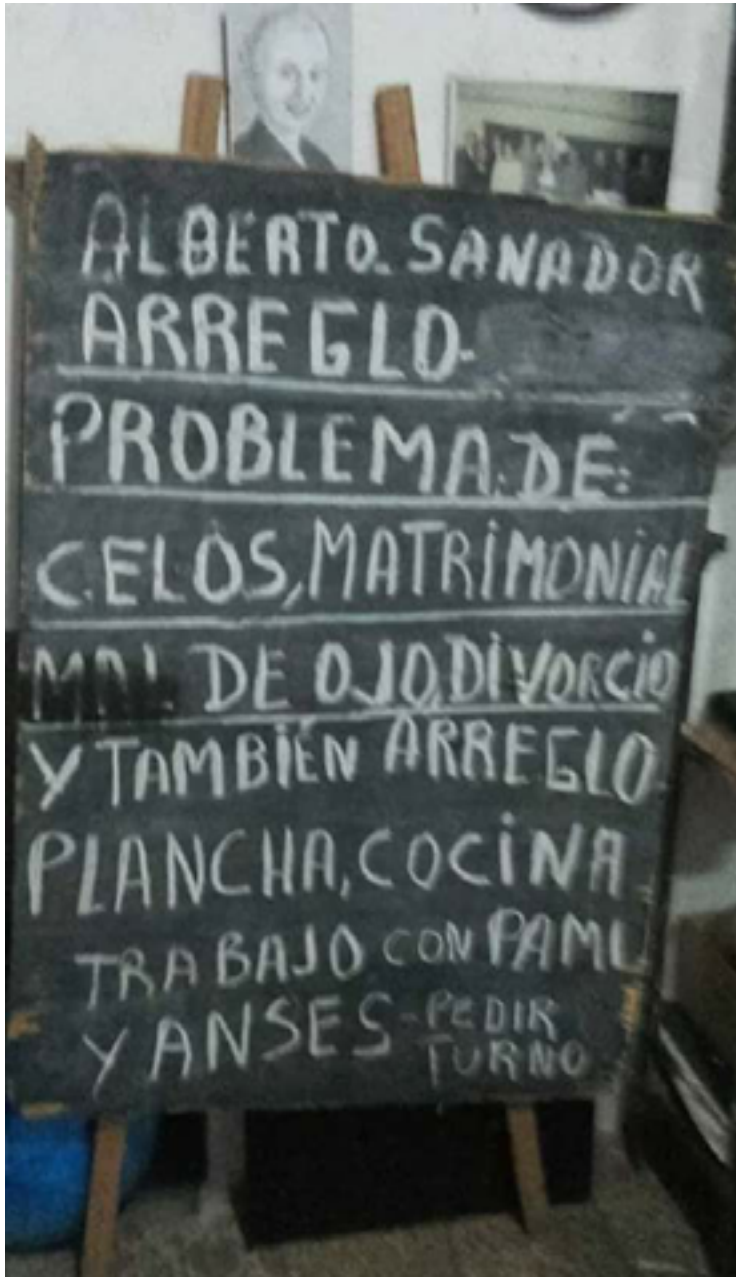 ALBERTO. SANADOR
ARREGLO-
PROBLEMA.DE:
CELOS, MATRIMONIAL
MAL DE OJO,DIVORCIO
Y TAMBIÉN ARREGLO
PLANCHA, COCINA
TRABAJO CON PAMI
Y ANSES-PEDIR
TURNO